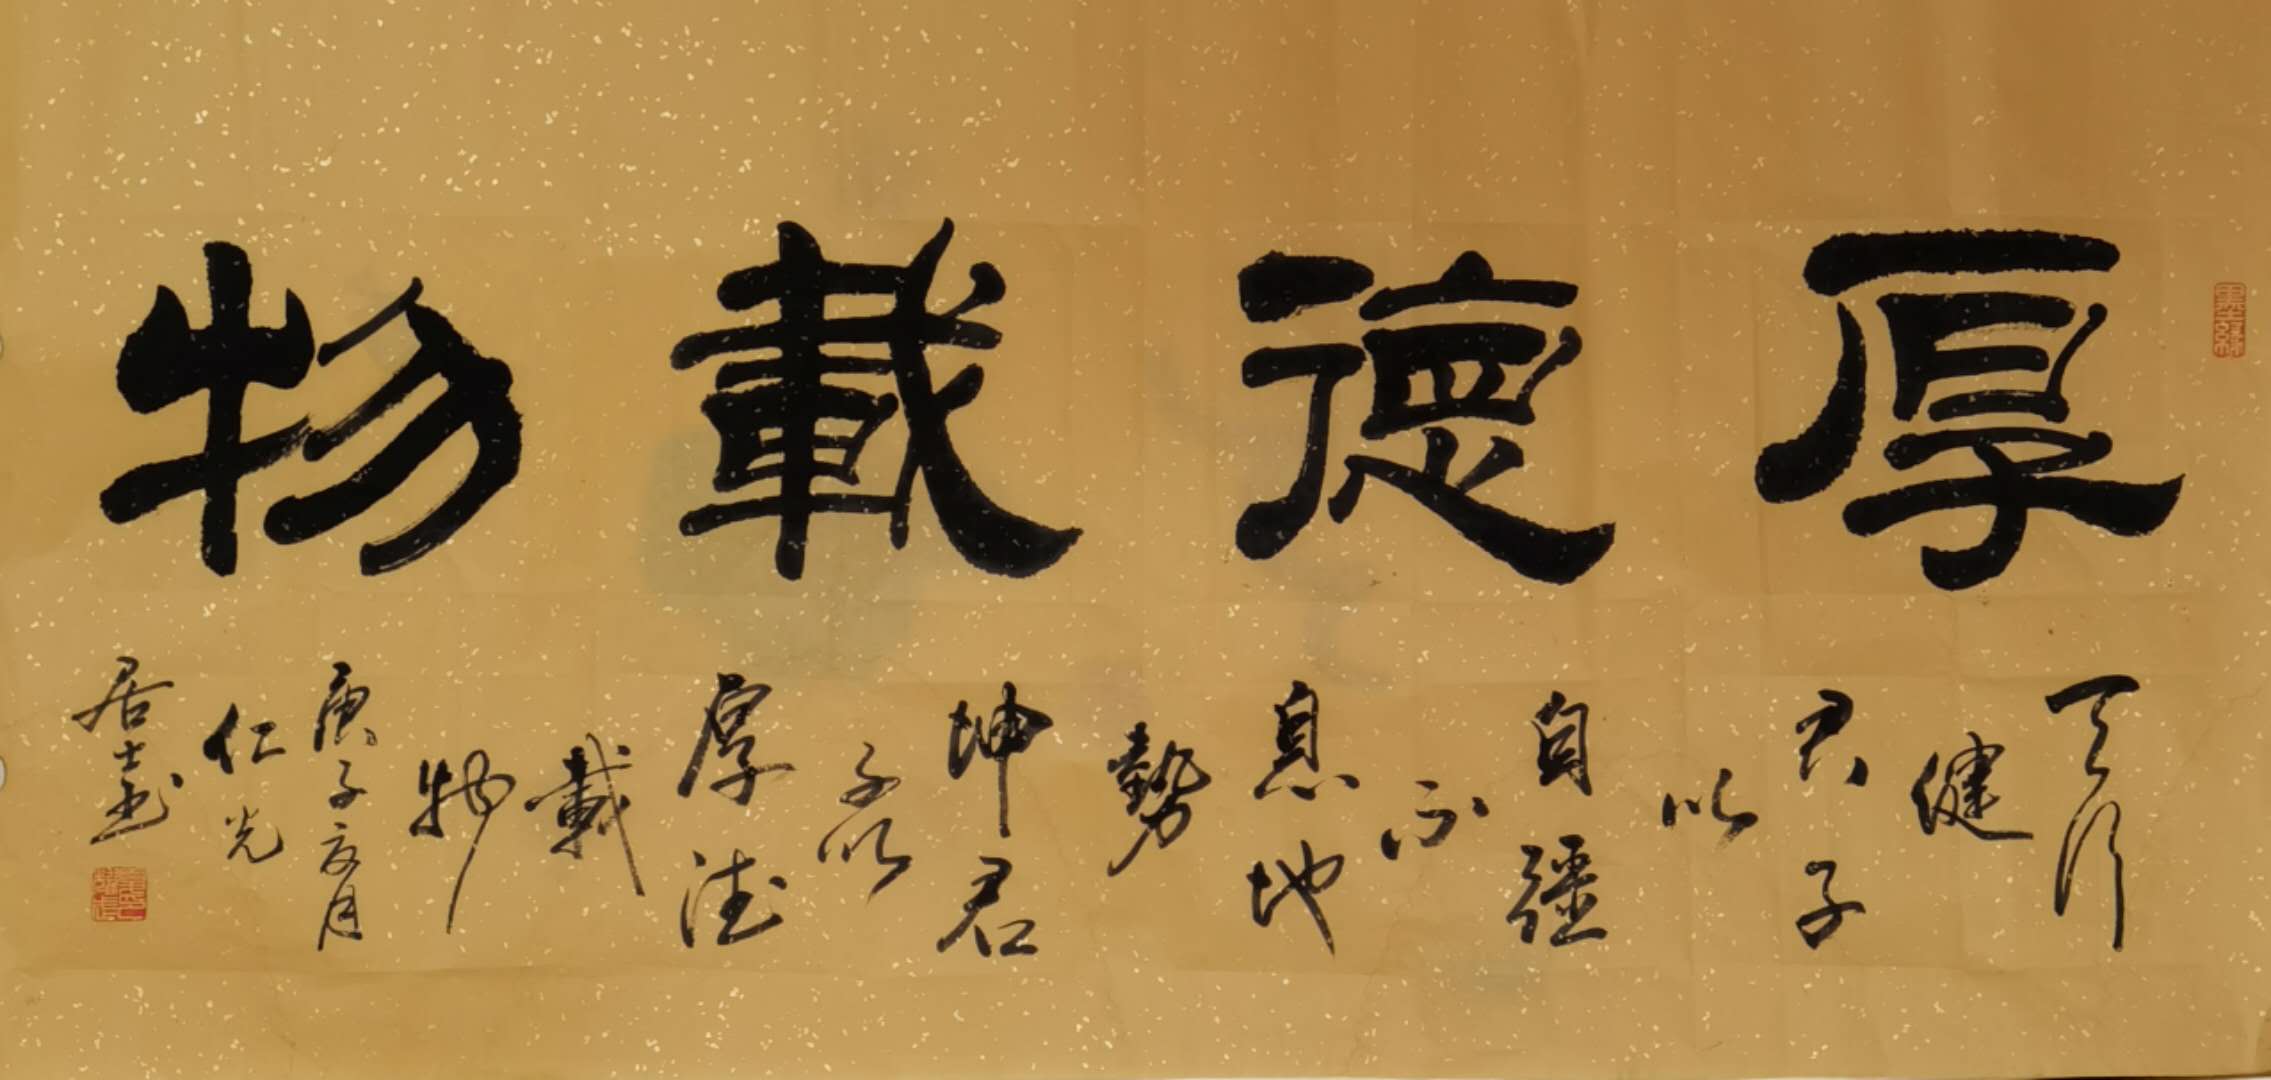 厚德載物
天行
健
君子
以
自彊
不
息地
勢
坤君
子以
厚德
載
物
庚子
月
仁光
居士書
墨緣